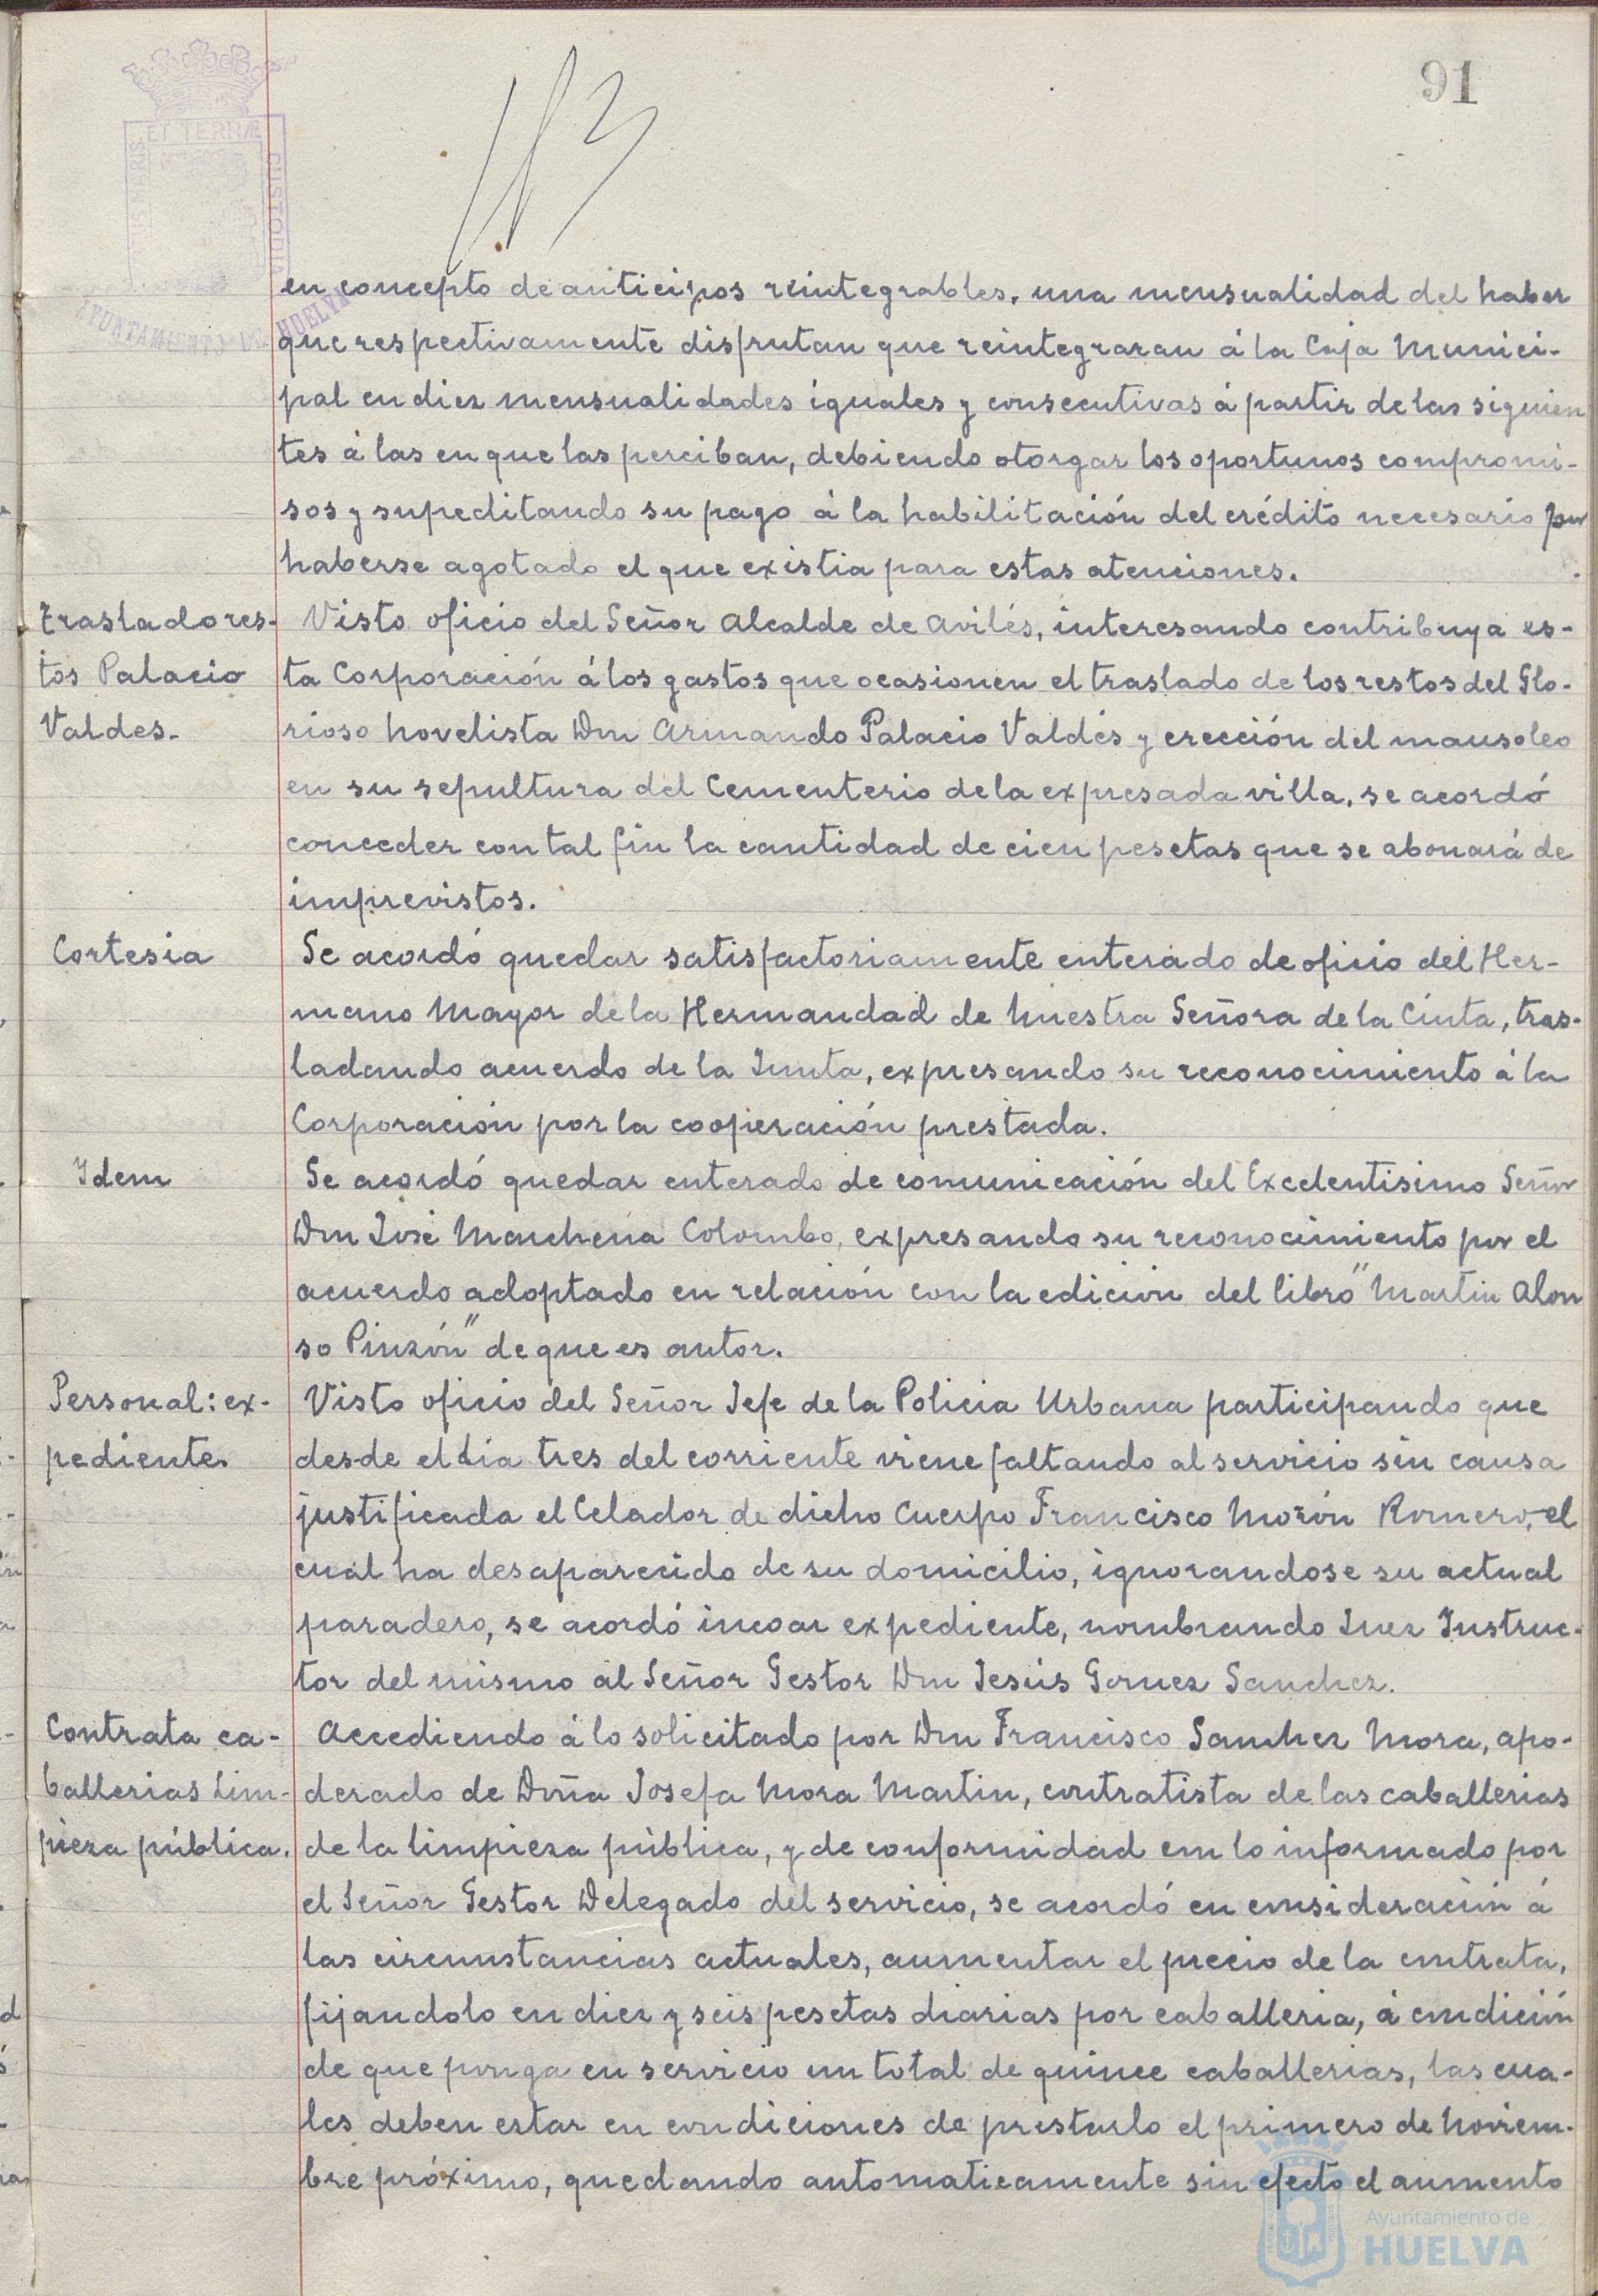 91
ET TERRÆ
CUSTODIA
AYUNTAMIENTO DE HUELVA
en concepto de anticipos reintegrables, una mensualidad del haber
que respectivamente disfrutan que reintegraran á la Caja Munici-
pal en diez mensualidades iguales y consecutivas á partir de las siguien
tes á las en que las perciban, debiendo otorgar los oportunos compromi-
sos y supeditando su pago á la habilitación del crédito necesario por
haberse agotado el que existia para estas atenciones.
Traslado res-
tos Palacio
Valdes.
Visto oficio del Señor Alcalde de Avilés, interesando contribuya es-
ta Corporación á los gastos que ocasionen el traslado de los restos del Glo-
rioso novelista Don Armando Palacio Valdés y erección del mausoleo
en su sepultura del Cementerio de la expresada villa, se acordó
conceder con tal fin la cantidad de cien pesetas que se abonará de
imprevistos.
Cortesia
Se acordó quedar satisfactoriamente enterado de oficio del Her-
mano Mayor de la Hermandad de Nuestra Señora de la Cinta, tras-
ladando acuerdo de la Junta, expresando su reconocimiento á la
Corporación por la cooperación prestada.
Idem
Se acordó quedar enterado de comunicación del Excelentisimo Señor
Don José Marchena Colombo, expresando su reconocimiento por el
acuerdo adoptado en relación con la edicion del libro "Martin Alon
so Pinzón" de que es autor.
Personal: ex-
pediente.
Visto oficio del Señor Jefe de la Policia Urbana participando que
desde el dia tres del corriente viene faltando al servicio sin causa
justificada el Celador de dicho Cuerpo Francisco Morón Romero, el
cual ha desaparecido de su domicilio, ignorandose su actual
paradero, se acordó incoar expediente, nombrando Juez Instruc-
tor del mismo al Señor Gestor Don Jesús Gomez Sanchez.
Contrata ca-
ballerias Lim-
pieza pública.
Accediendo á lo solicitado por Don Francisco Sanchez Mora, apo-
derado de Doña Josefa Mora Martin, contratista de las caballerias
de la limpieza pública, y de conformidad con lo informado por
el Señor Gestor Delegado del servicio, se acordó en consideración á
las circunstancias actuales, aumentar el precio de la contrata,
fijandolo en diez y seis pesetas diarias por caballeria, á condición
de que ponga en servicio un total de quince caballerias, las cua-
les deben estar en condiciones de prestarlo el primero de Noviem-
bre próximo, quedando automaticamente sin efecto el aumento
Ayuntamiento de
HUELVA